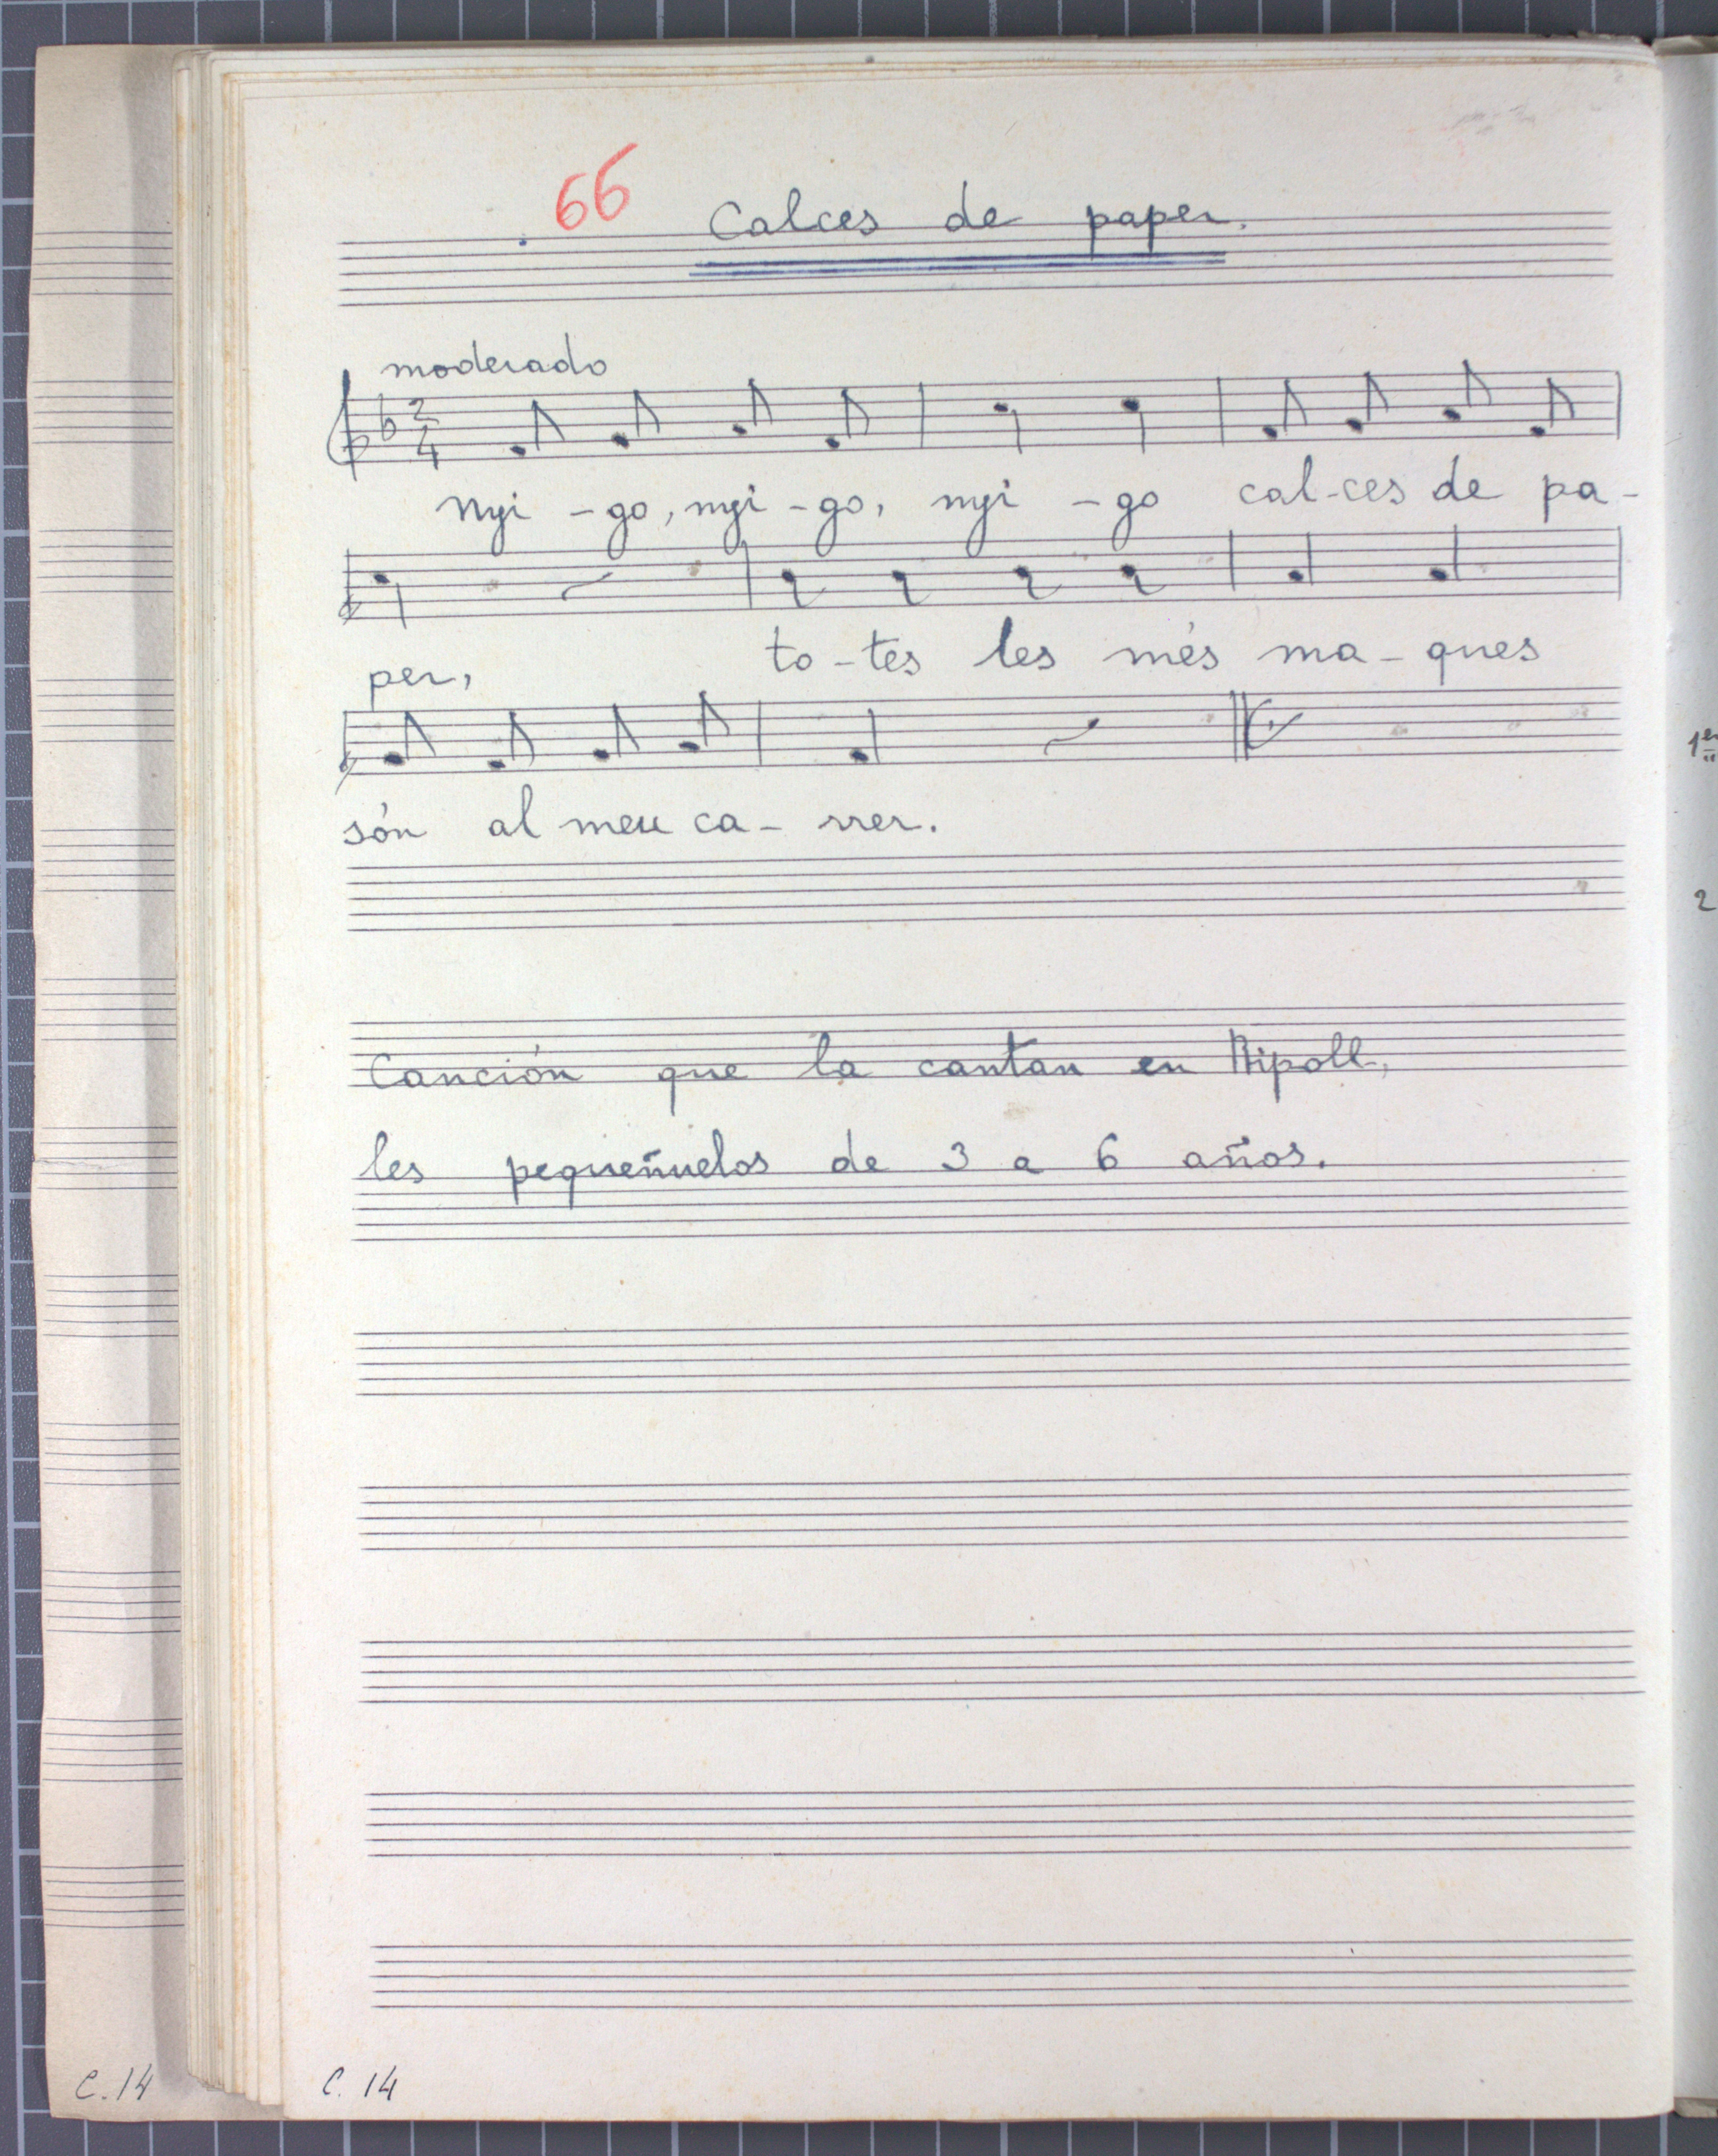 66 Calces de paper.
moderado
2
4
Nyi - go, nyi - go, nyi - go cal - ces de pa -
per, to - tes les més ma - ques
són al meu ca - rrer.
Canción que la cantan en Ripoll,
les pequeñuelos de 3 a 6 años.
C. 14 C. 14
1er
2